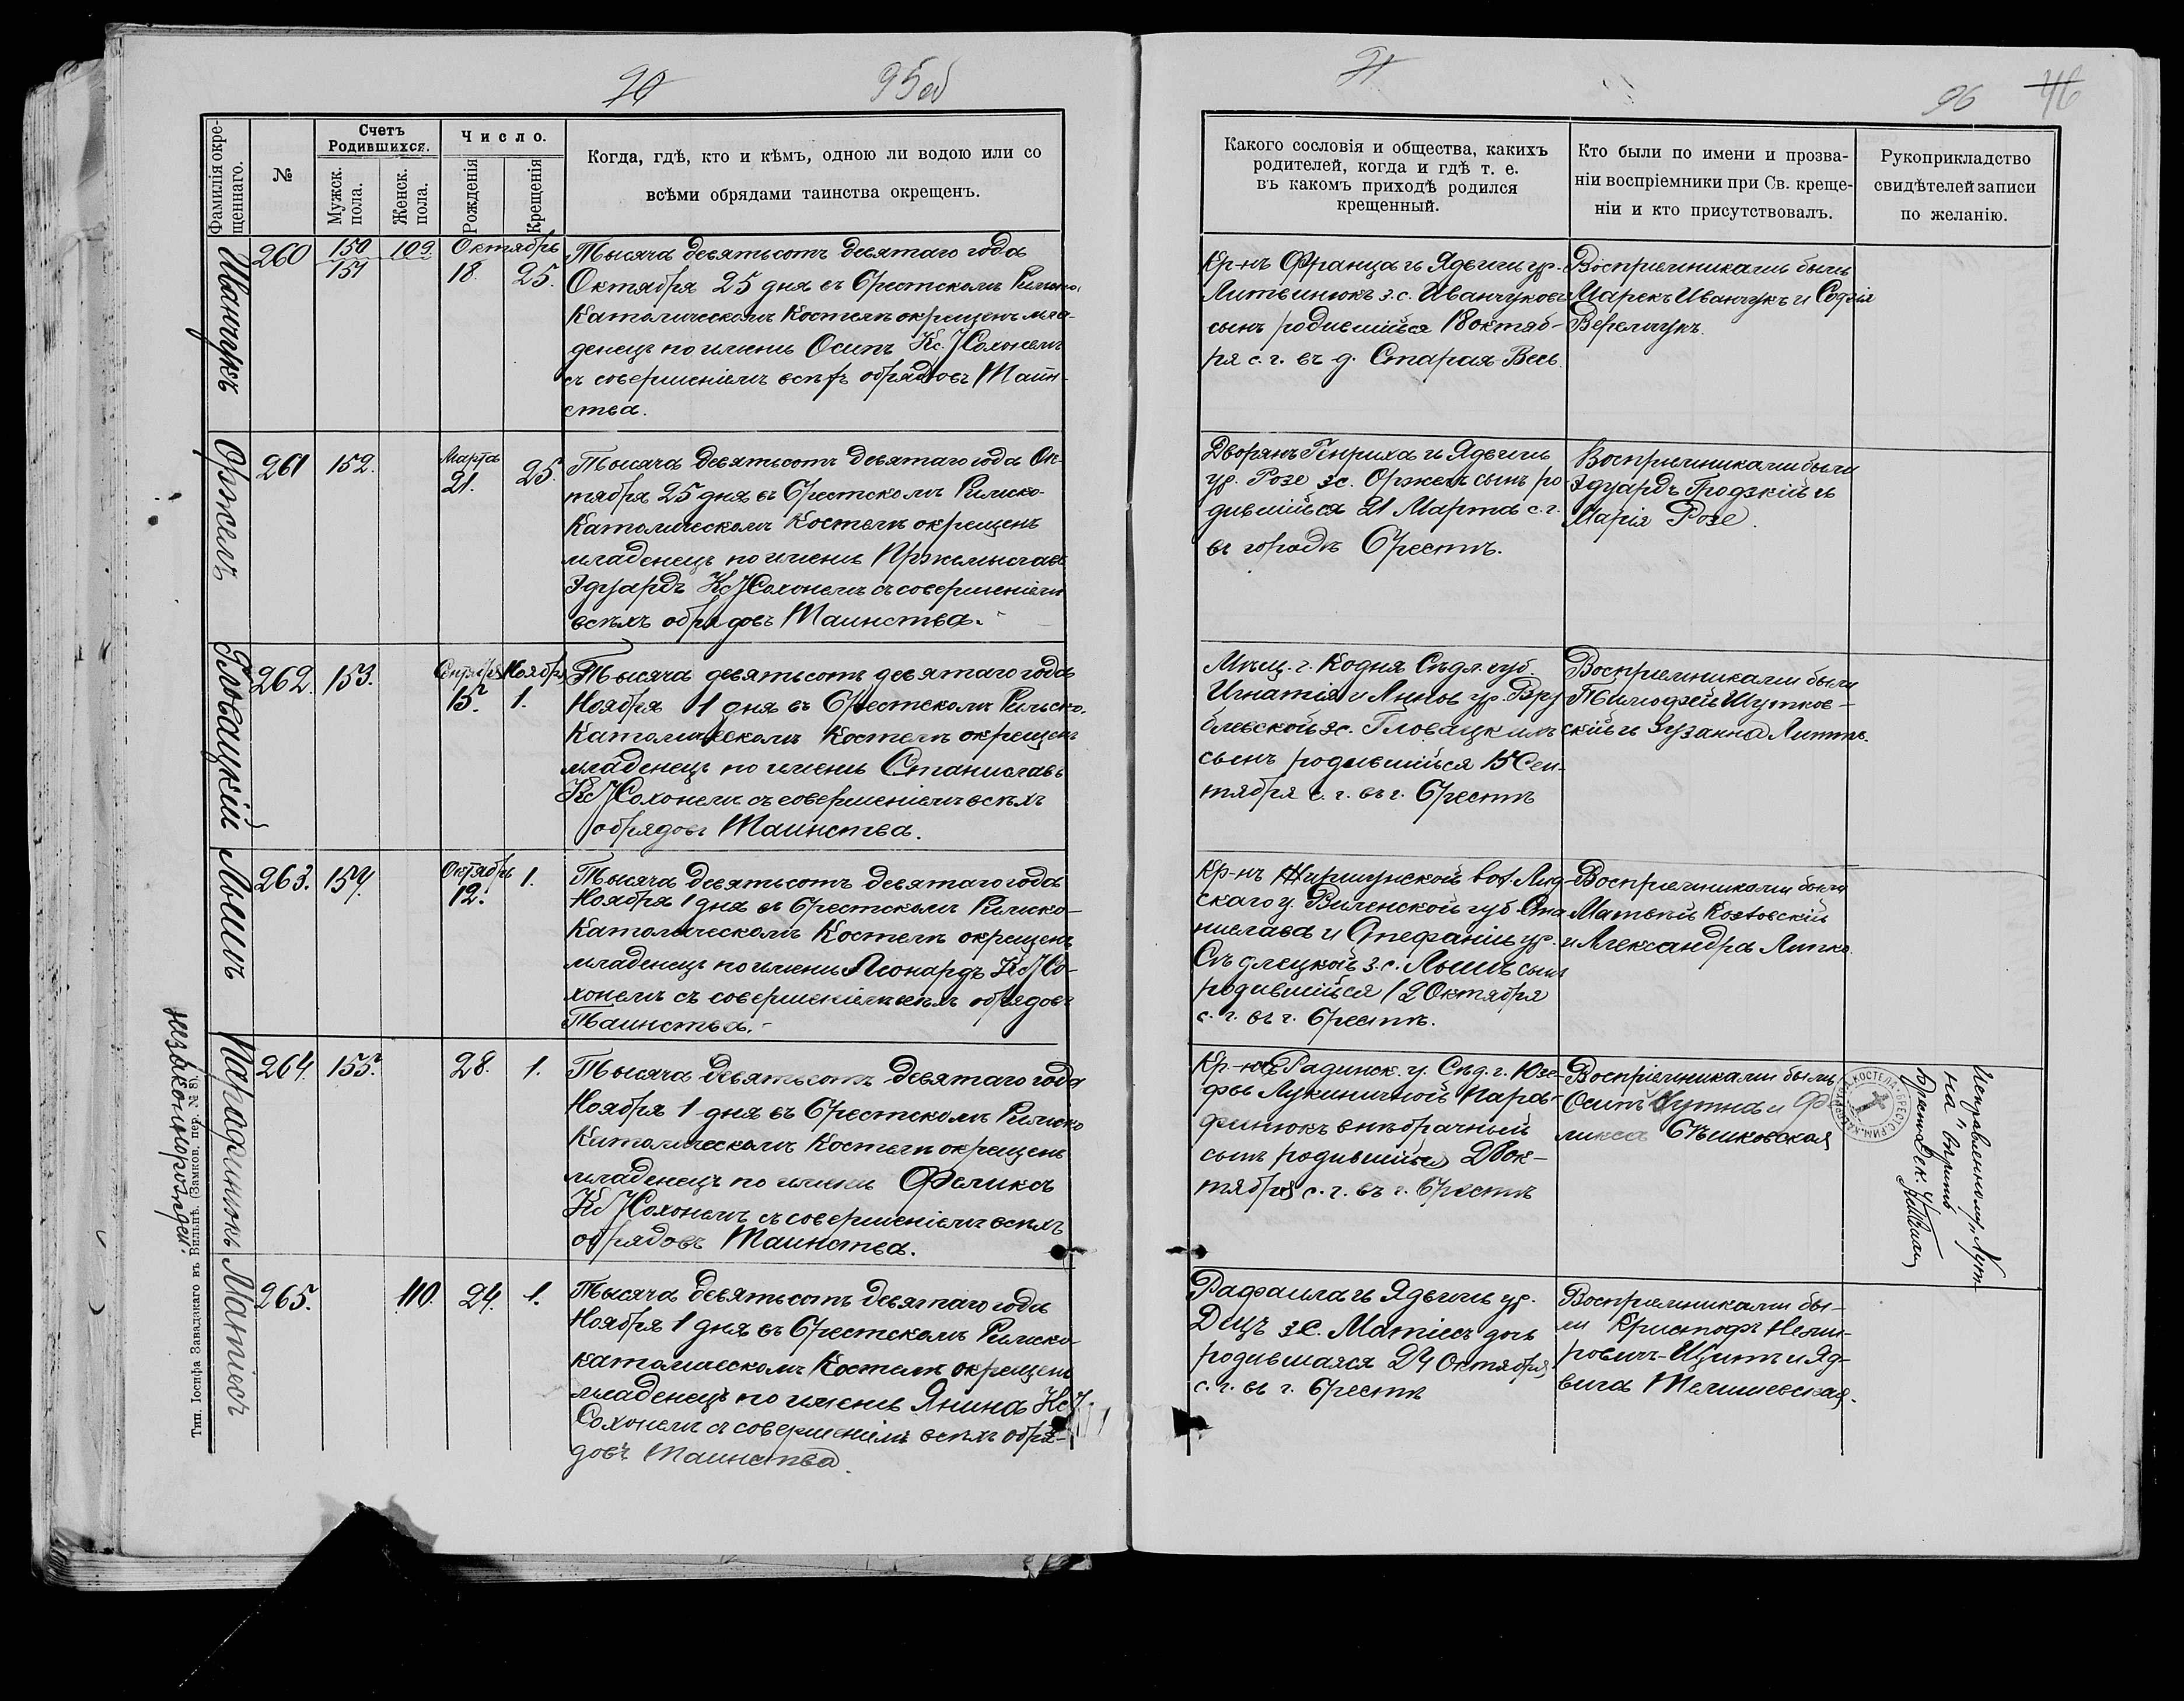 70 95об
Фамилія окре-
щеннаго.
№
Счетъ
Родившихся.
Мужск.
пола.
Женск.
пола.
Число.
Рожденія
Крещенія
Когда, гдѣ, кто и кѣмъ, одною ли водою или со
всѣми обрядами таинства окрещенъ.
Иванчукъ
260 150 109 Октябрь
151 18. 25.
Тысяча девятьсотъ девятаго года
Октября 25 дня въ Брестскомъ Римско-
Католическомъ Костелѣ окрещенъ мла-
денецъ по имени Осипъ Кс. І Солонемъ
съ совершеніемъ всѣхъ обрядовъ Таин-
ства.
Оржелъ
261 152. Марта
21. 25.
Тысяча девятьсотъ девятаго года Ок-
тября 25 дня въ Брестскомъ Римско-
Католическомъ Костелѣ окрещенъ
младенецъ по имени
Эдуардъ Кс І Солонемъ съ совершеніемъ
всѣхъ обрядовъ Таинства.
Гловацкій
262. 153. Сентября Ноябрь
15. 1.
Тысяча девятьсотъ девятаго года
Ноября 1 дня въ Брестскомъ Римско-
Католическомъ Костелѣ окрещенъ
младенецъ по имени Станиславъ
Кс І Солонемъ съ совершеніемъ всѣхъ
обрядовъ Таинства.
Лышъ
263. 154. Октябрь
12. 1.
Тысяча девятьсотъ девятаго года
Ноября 1 дня въ Брестскомъ Римско-
Католическомъ Костелѣ окрещенъ
младенецъ по имени Леонардъ Кс І Со-
лонемъ съ совершеніемъ всѣхъ обрядовъ
Таинства.
Парафинюкъ
незаконнорожден.
264. 155. 28. 1.
Тысяча девятьсотъ девятаго года
Ноября 1 дня въ Брестскомъ Римско
Католическомъ Костелѣ окрещенъ
младенецъ по имени Феликсъ
Кс І Солонемъ съ совершеніемъ всѣхъ
обрядовъ Таинства.
Матіесъ
265. 110. 24. 1.
Тысяча девятьсотъ девятаго года
Ноября 1 дня въ Брестскомъ Римско-
католическомъ Костелѣ окрещенъ
младенецъ по имени Янина Кс І.
Солонемъ съ совершеніемъ всѣхъ обря-
довъ Таинства.
Тип. Іосифа Завадзкаго въ Вильнѣ. (Замков. пер. № 8).
71 96 46
Какого сословія и общества, какихъ
родителей, когда и гдѣ т. е.
въ какомъ приходѣ родился
крещенный.
Кто были по имени и прозва-
ніи воспріемники при Св. креще-
ніи и кто присутствовалъ.
Рукоприкладство
свидѣтелей записи
по желанію.
Кр-нъ Франца и Ядвиги ур.
Литвинюкъ з.с. Иванчуковъ
сынъ родившійся 18 октяб-
ря с.г. въ д. Старая Весь.
Воспріемниками были
Марекъ Иванчукъ и Софія
Веремчукъ.
Дворянъ Генриха и Ядвиги
ур. Розе зс. Оржелъ сынъ ро-
дившійся 21 Марта с.г.
въ городѣ Брестѣ.
Воспріемниками были
Эдуардъ Гродзкій и
Марія Розе.
Мѣщ. г. Кодня Сѣдл. губ
Игнатія и Анны ур. Вру-
блевской зс. Гловацкихъ
сынъ родившійся 15 Сен-
тября с. г. въ г. Брестѣ
Воспріемниками были
Тимофей Шутков-
скій и Зузанна Литте.
Кр-нъ Жирмунской вол. Лид-
скаго у. Виленской губ. Ста-
нислава и Стефаніи ур.
Сѣдлецкой з.с. Лышъ сынъ
родившійся 12 Октября
с. г. въ г. Брестѣ.
Воспріемниками были
Матвѣй Козловскій
и Александра Липко.
Кр-ки Радинск. у. Сѣд. г. Юзе-
фы Лукиничной Пара-
финюкъ внѣбрачный
сынъ родившійся 28 ок-
тября с. г. въ г. Брестѣ
Воспріемниками были
Осипъ Кутна и Фе
ликса Сѣшковская
Исправленному „Кут-
на" вѣрить
Рафаила и Ядвиги ур.
Децъ зс. Матіесъ дочь
родившаяся 24 Октября
с. г. въ г. Брестѣ
Воспріемниками бы-
ли Кристофъ Неми-
ровичъ-Щитъ и Яд-
вига Телишевская.